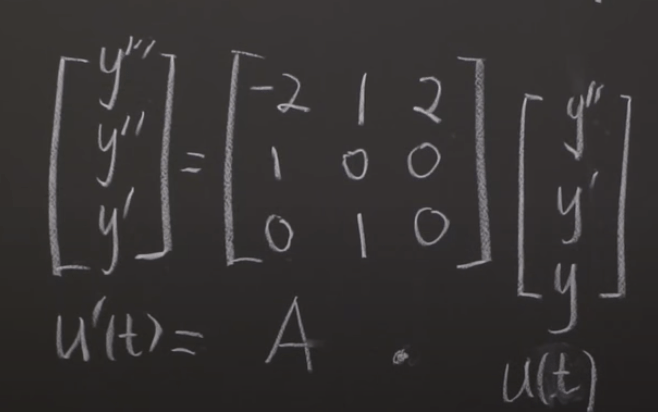 [y''' y'' y'] = [-2 1 2; 1 0 0; 0 1 0] [y'' y' y]
u'(t) = A · u(t)